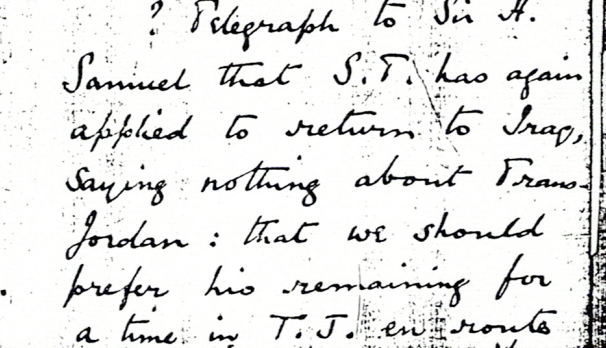 ? Telegraph to Sir H.
Samuel that S.T. has again
applied to return to Iraq,
saying nothing about Trans-
Jordan : that we should
prefer his remaining for
a time in T.J. en route